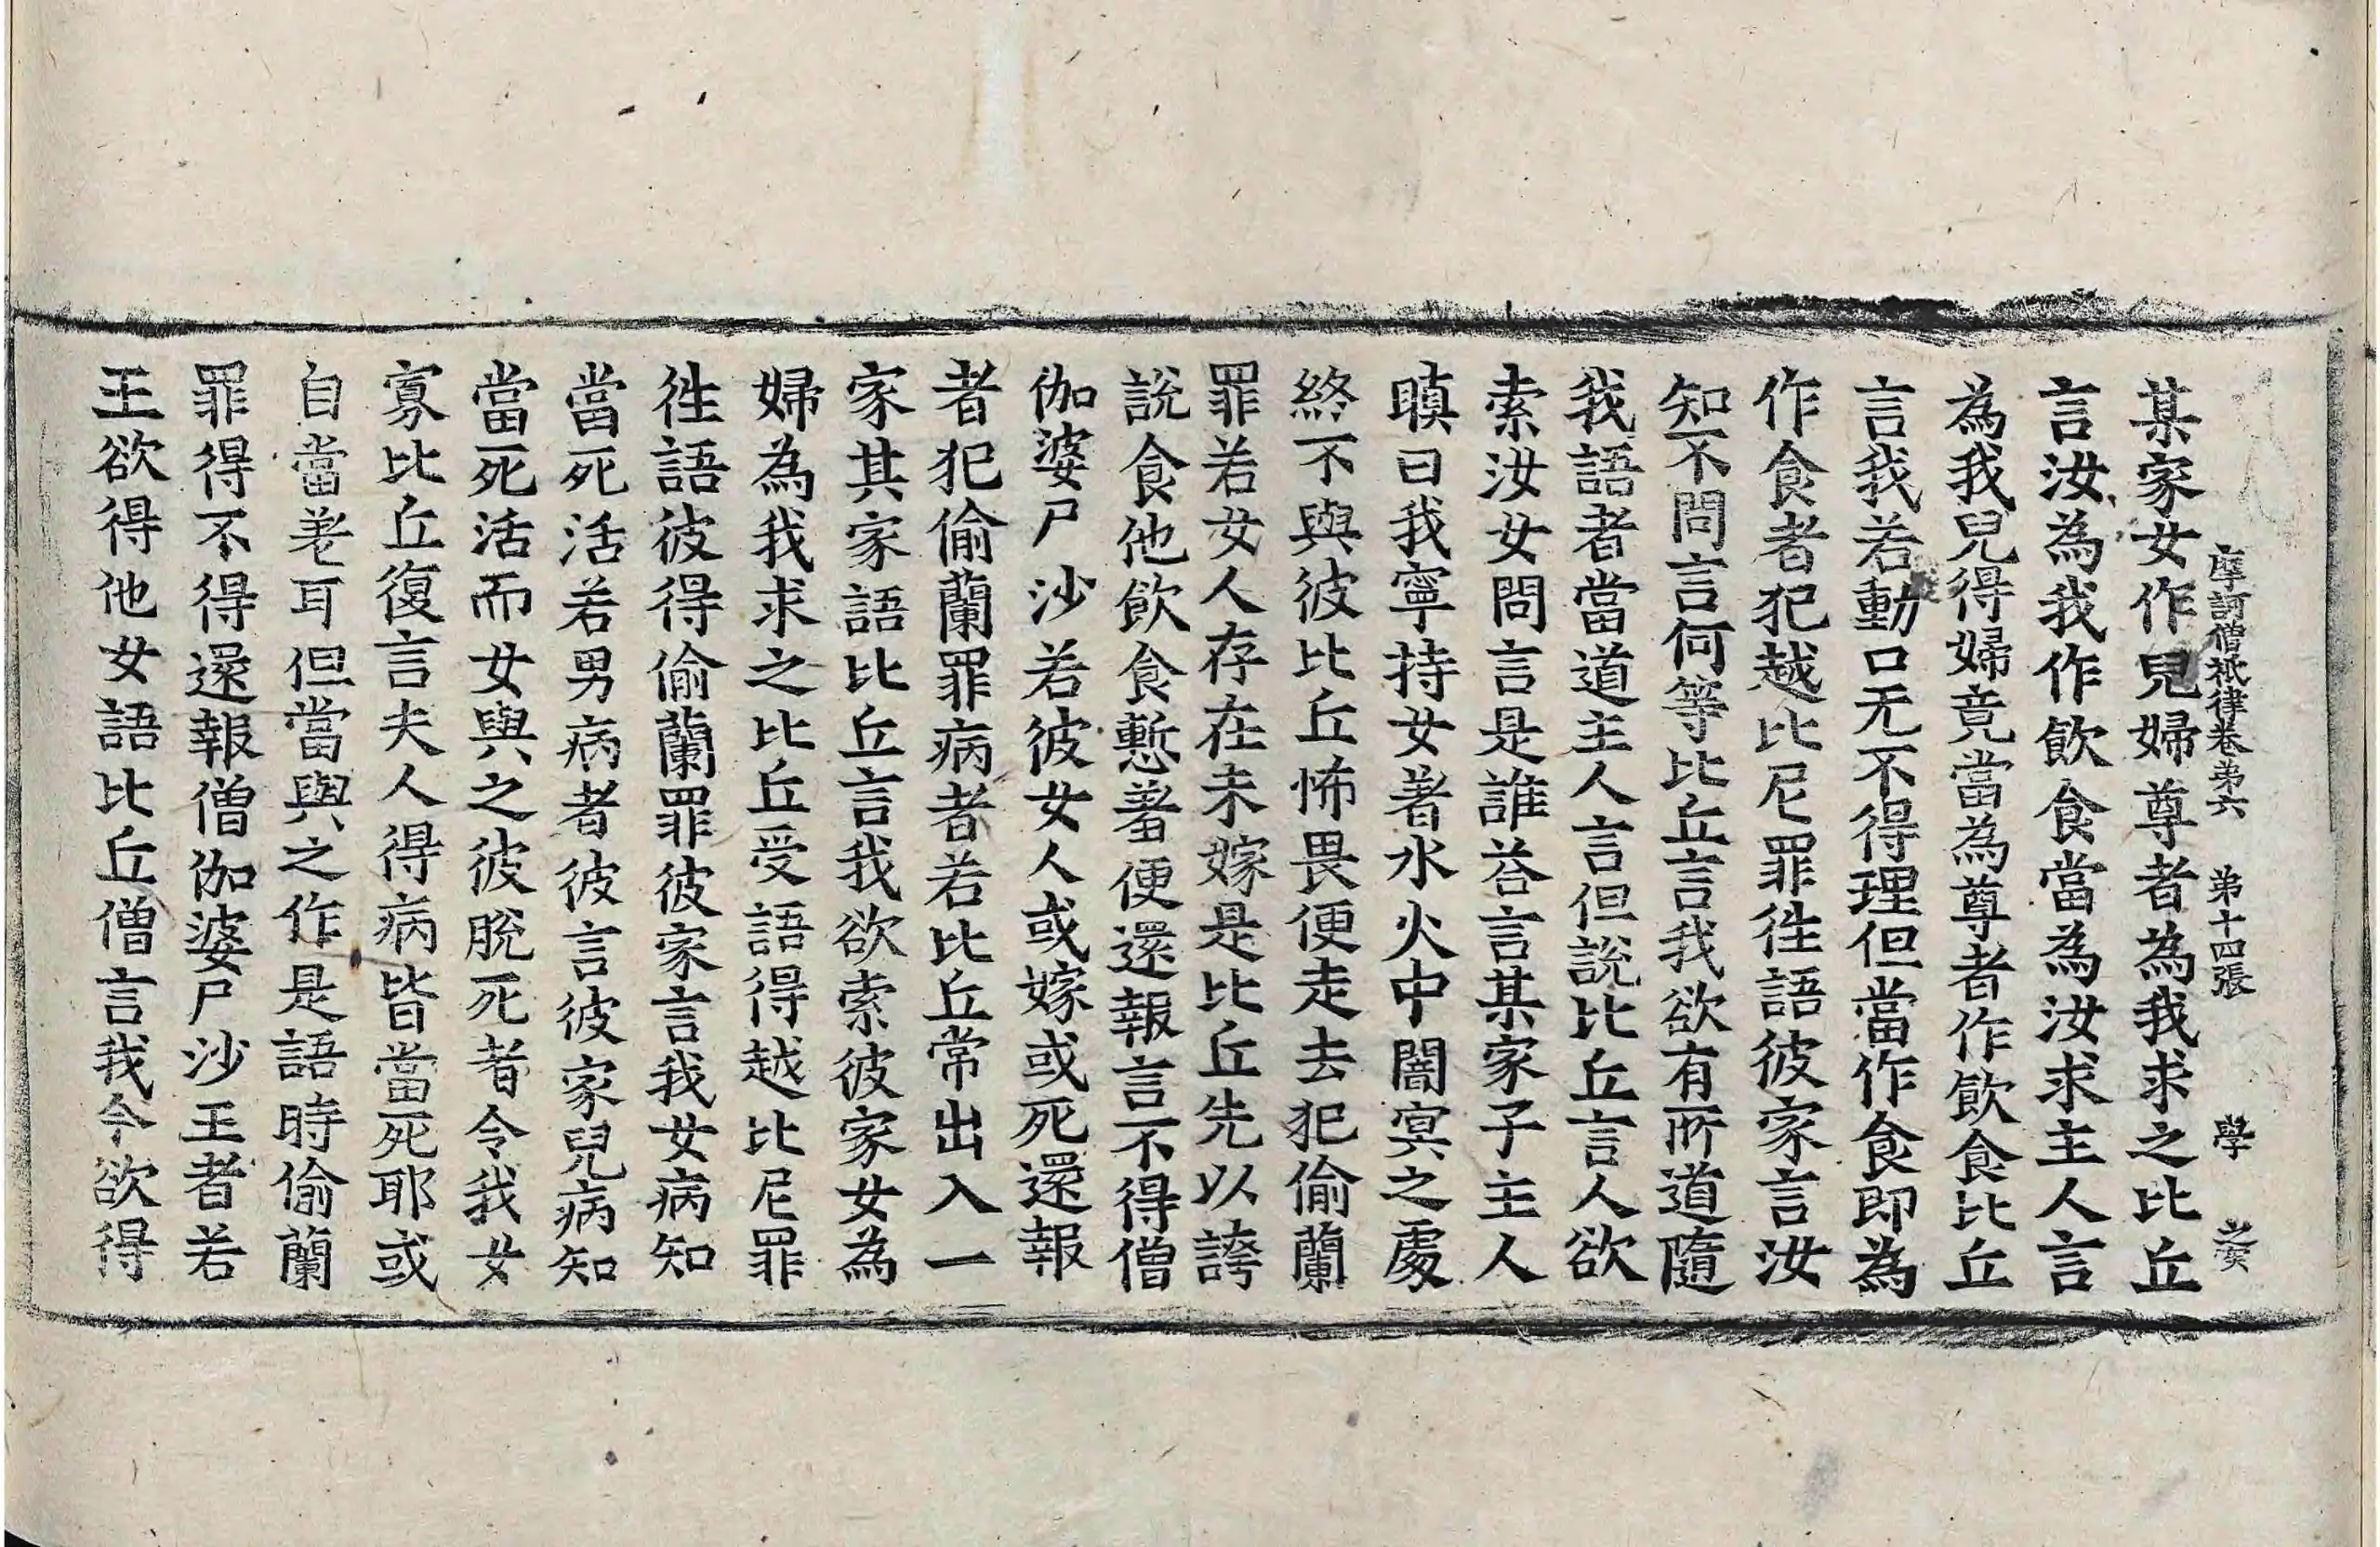 摩訶僧祇律卷第六　第十四張　學
某家女作兒婦尊者為我求之比丘
言汝為我作飲食當為汝求主人言
為我兒得婦竟當為尊者作飲食比丘
言我若動口无不得理但當作食即為
作食者犯越比尼罪徃語彼家言汝
知不問言何等比丘言我欲有所道隨
我語者當道主人言但說比丘言人欲
索汝女問言是誰荅言某家子主人
瞋曰我寧持女著水火中闇冥之處
終不與彼比丘怖畏便走去犯偷蘭
罪若女人存在未嫁是比丘先以誇
說食他飲食慙羞便還報言不得僧
伽婆尸沙若彼女人或嫁或死還報
者犯偷蘭罪病者若比丘常出入一
家其家語比丘言我欲索彼家女為
婦為我求之比丘受語得越比尼罪
徃語彼得偷蘭罪彼家言我女病知
當死活若男病者彼言彼家兒病知
當死活而女與之彼脫死者令我女
寡比丘復言夫人得病皆當死耶或
自當差耳但當與之作是語時偷蘭
罪得不得還報僧伽婆尸沙王者若
王欲得他女語比丘僧言我今欲得